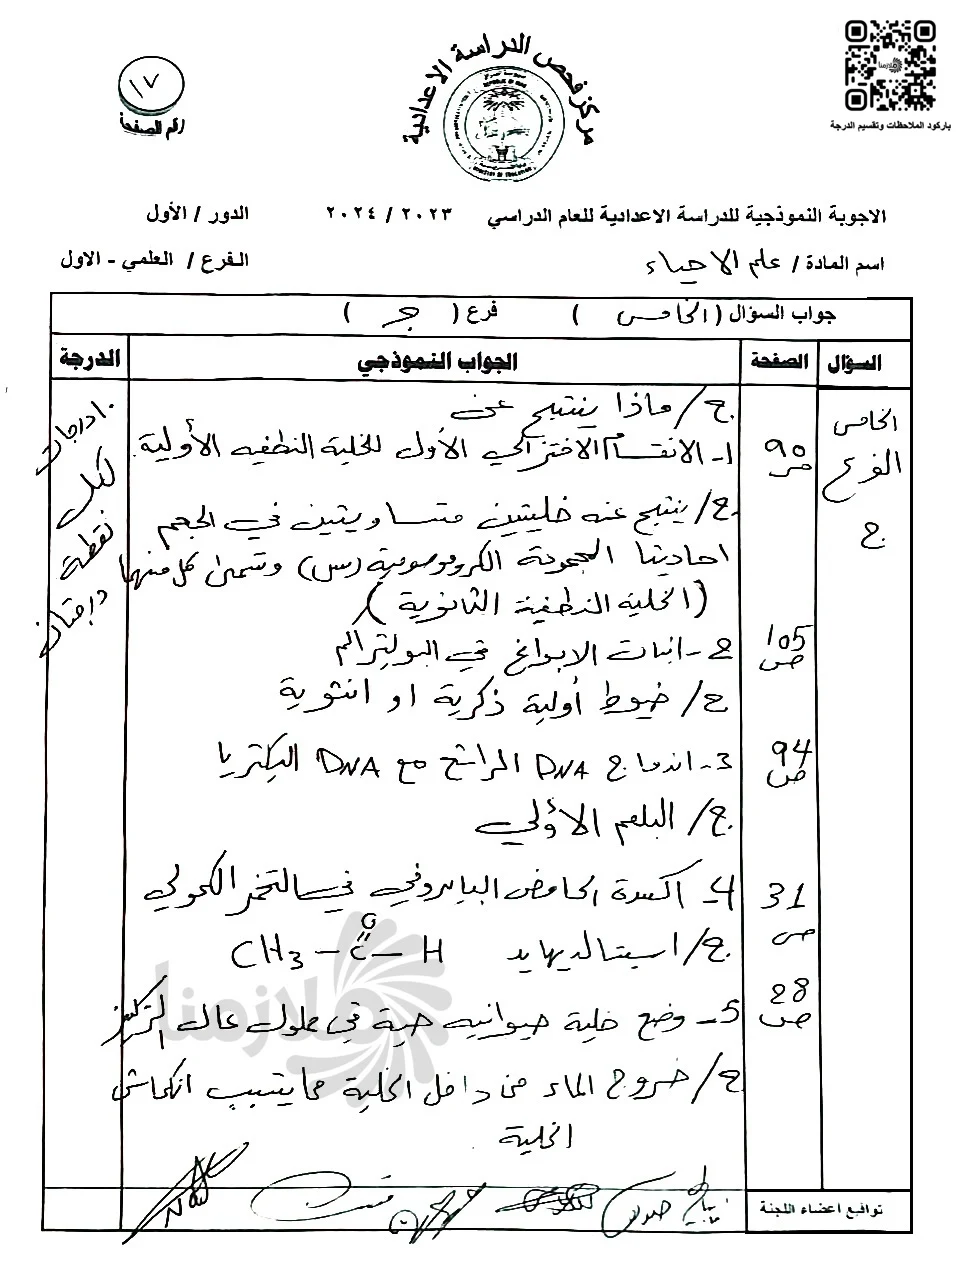 باركود الملاحظات وتقسيم الدرجة
مركز فحص الدراسة الاعدادية
١٧
رقم الصفحة
الاجوبة النموذجية للدراسة الاعدادية للعام الدراسي ٢٠٢٣ / ٢٠٢٤ الدور / الأول
اسم المادة / علم الاحياء الفرع / العلمي - الاول
جواب السؤال ( الخامس ) فرع ( جـ )
السؤال الصفحة الجواب النموذجي الدرجة
الخامس
الفرع
ج
١٠ درجات
لكل
نقطة
درجتان
ج/ ماذا ينتج عن
1- الانقسام الاختزالي الأول للخلية النطفية الأولية.
ص 90
ج/ ينتج عنه خليتين متساويتين في الحجم
احاديتا المجموعة الكروموصومية (س) وتسمى كل منها
(الخلية النطفية الثانوية)
2- انبات الابواغ في البولترالم
ص 105
ج/ خيوط أولية ذكرية او انثوية
3- اندماج DNA الراشح مع DNA البكتريا
ص 94
ج/ البلعم الأولي
4- اكسدة الحامض البايروفي في التخمر الكحولي
ص 31
ج/ اسيتالديهايد CH3 - C - H
O
5- وضع خلية حيوانيه حية في محلول عال التركيز
ص 28
ج/ خروج الماء من داخل الخلية مما يتسبب انكماش
الخلية
ملازمنا
تواقيع اعضاء اللجنة